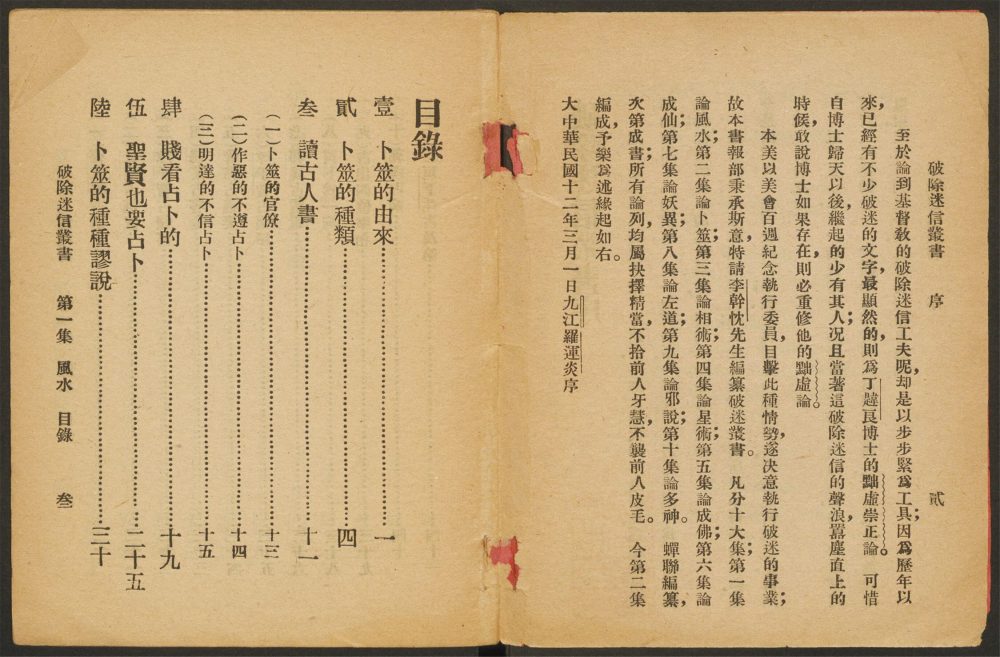 破除迷信叢書　序　貳
至於論到基督教的破除迷信工夫呢，却是以步步緊爲工具；因爲歷年以
來，已經有不少破迷的文字，最顯然的，則爲丁韙良博士的黜虛崇正論。可惜
自博士歸天以後，繼起的少有其人；况且當著這破除迷信的聲浪，囂塵直上的
時候，敢說博士如果存在，則必重修他的黜虛論。
本美以美會百週紀念執行委員，目擊此種情勢，遂決意執行破迷的事業；
故本書報部秉承斯意，特請李幹忱先生編纂破迷叢書。凡分十大集；第一集
論風水；第二集論卜筮；第三集論相術；第四集論星術；第五集論成佛；第六集論
成仙；第七集論妖異；第八集論左道；第九集論邪說；第十集論多神。蟬聯編纂，
次第成書；所有論列，均屬抉擇精當，不拾前人牙慧，不襲前人皮毛。今第二集
編成，予樂爲述緣起如右。
大中華民國十二年三月一日九江羅運炎序
目錄
壹　卜筮的由來……一
貳　卜筮的種類……四
叁　讀古人書……十一
(一)卜筮的官僚……十三
(二)作惡的不遵占卜……十四
(三)明達的不信占卜……十五
肆　賤看占卜的……十九
伍　聖賢也要占卜……二十五
陸　卜筮的種種謬說……三十
破除迷信叢書　第一集　風水　目錄　叁